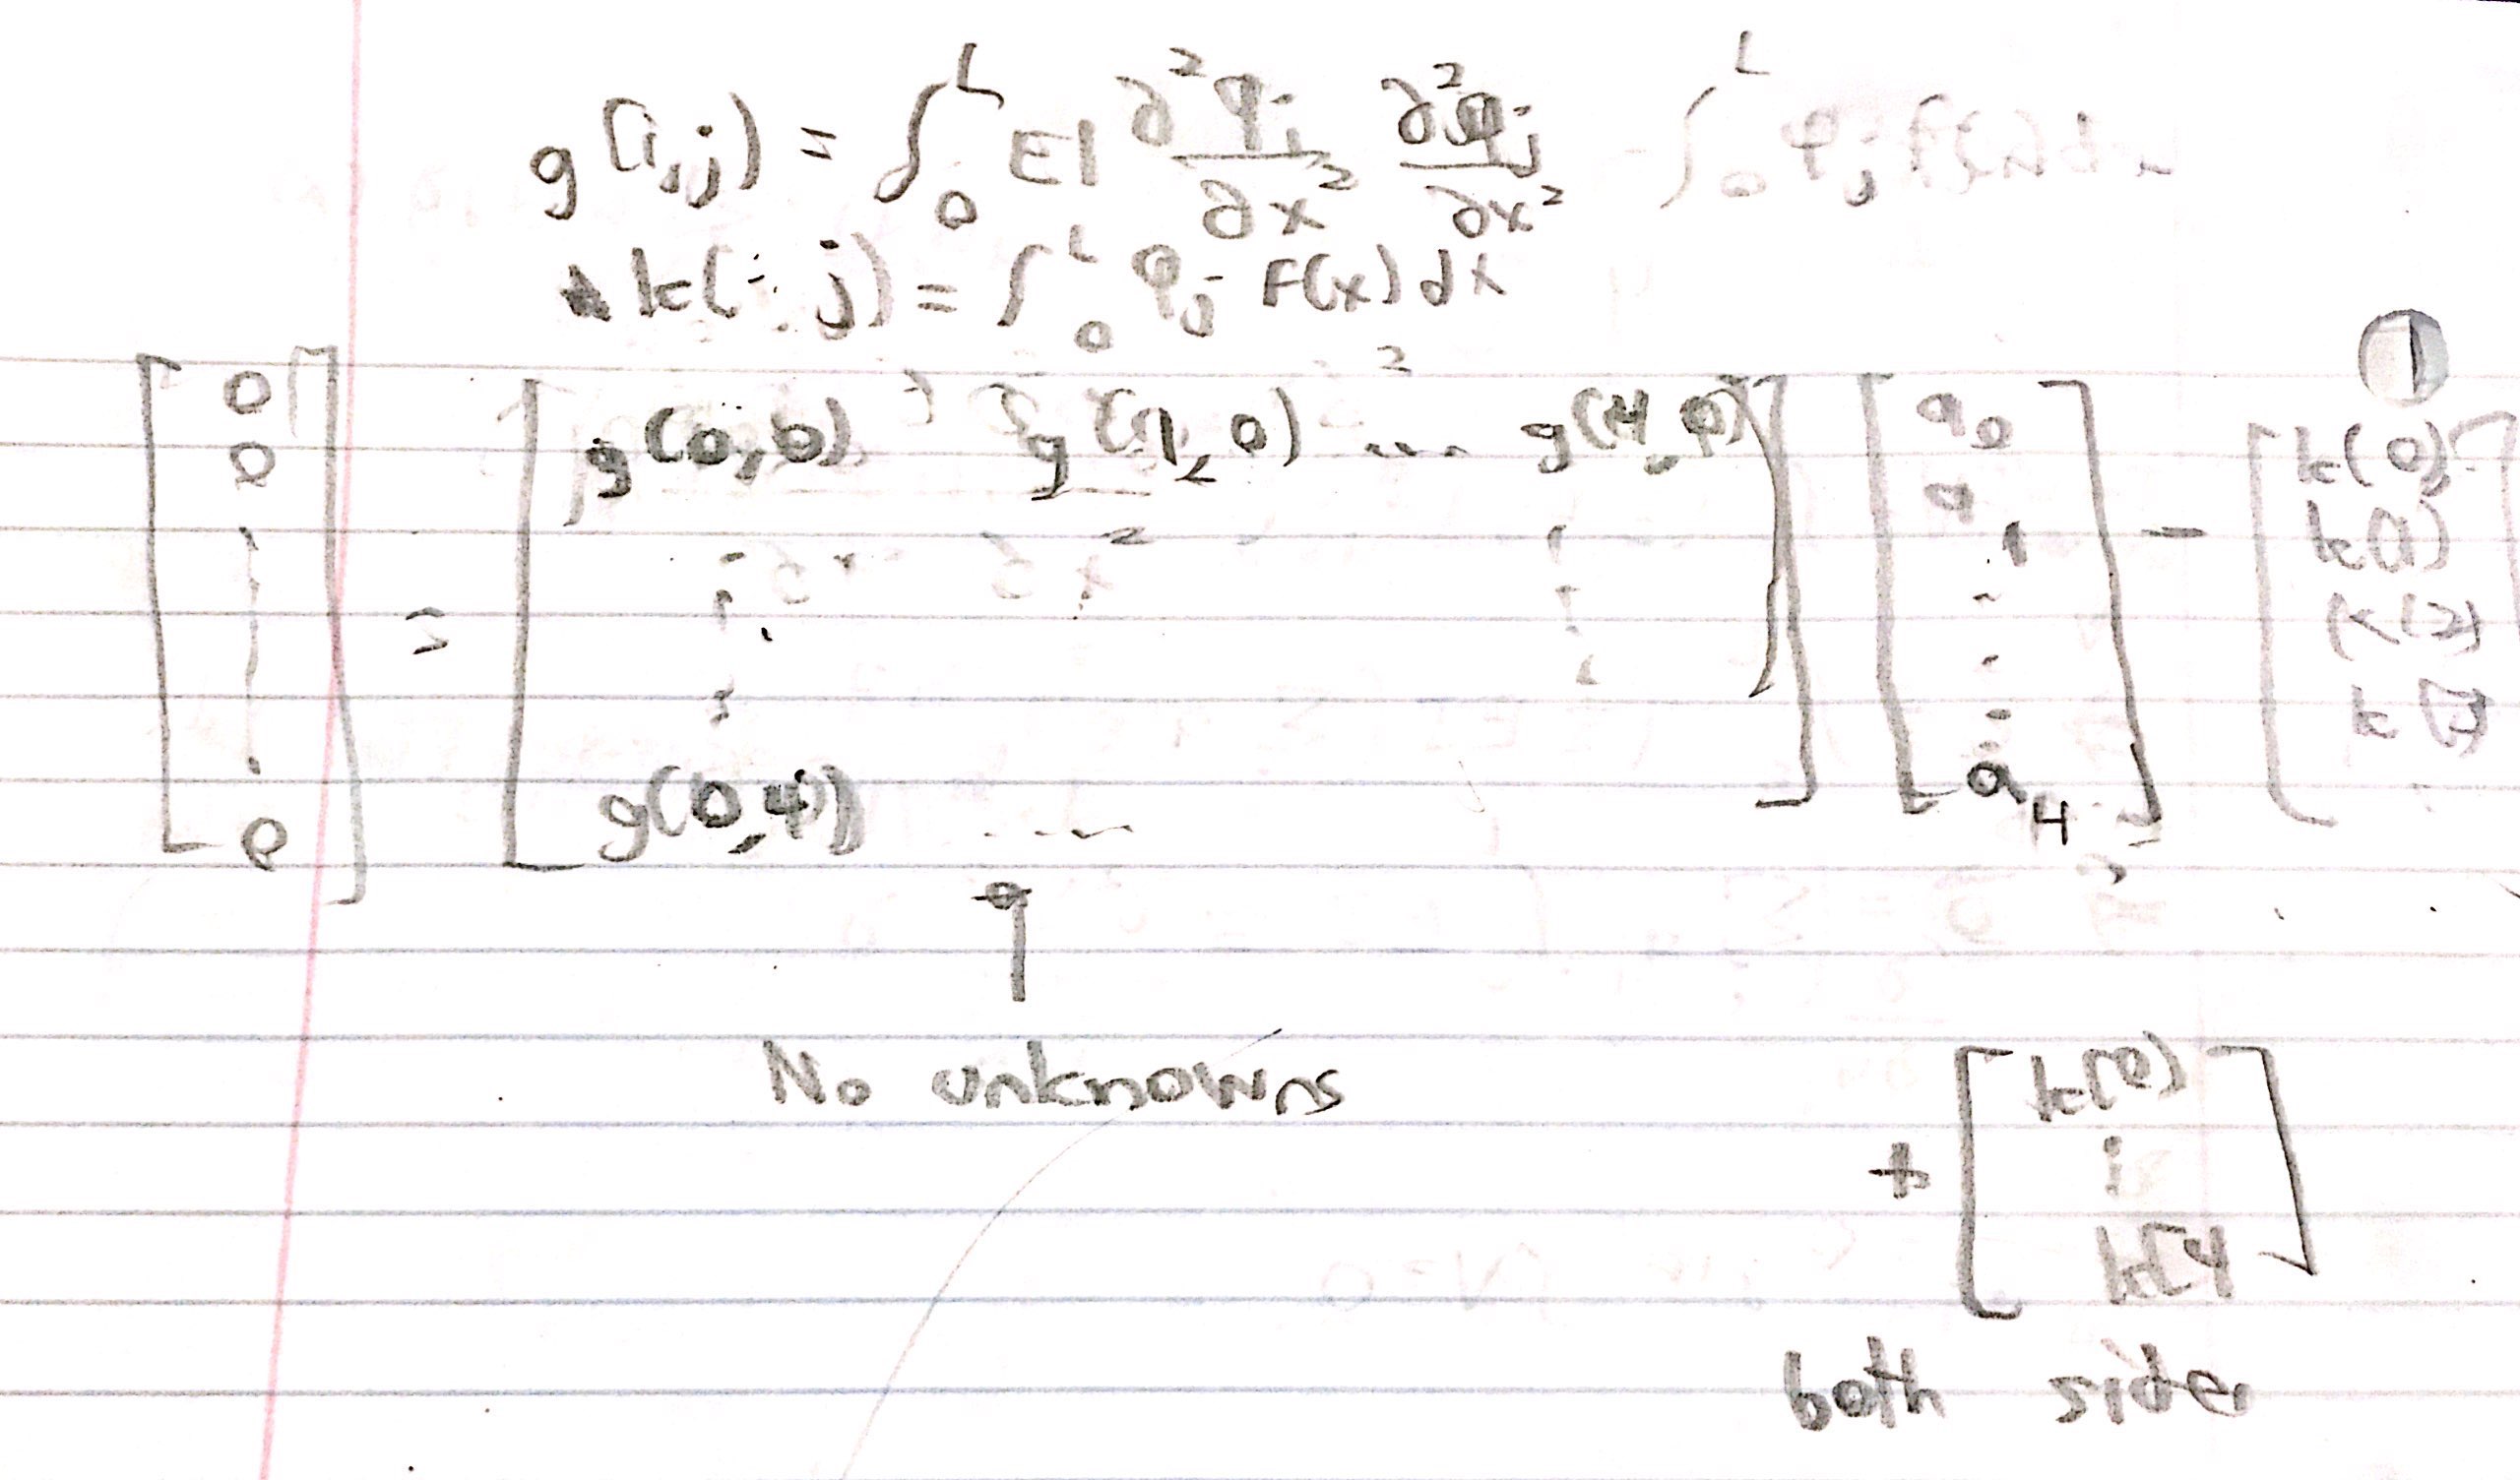 g(i,j) = ∫₀ᴸ EI ∂²φᵢ/∂x² ∂²φⱼ/∂x² - ∫₀ᴸ φⱼ f(x)dx
k(i, j) = ∫₀ᴸ φⱼ F(x) dx
[0 0 ⋮ 0] = [g(0,0) g(1,0) ... g(4,0) ⋮ ⋮ g(0,4) ...] [a₀ a₁ ⋮ a₄] - [k(0) k(1) k(2)
No unknowns
+ [k(0) ⋮ k(4]
both sides